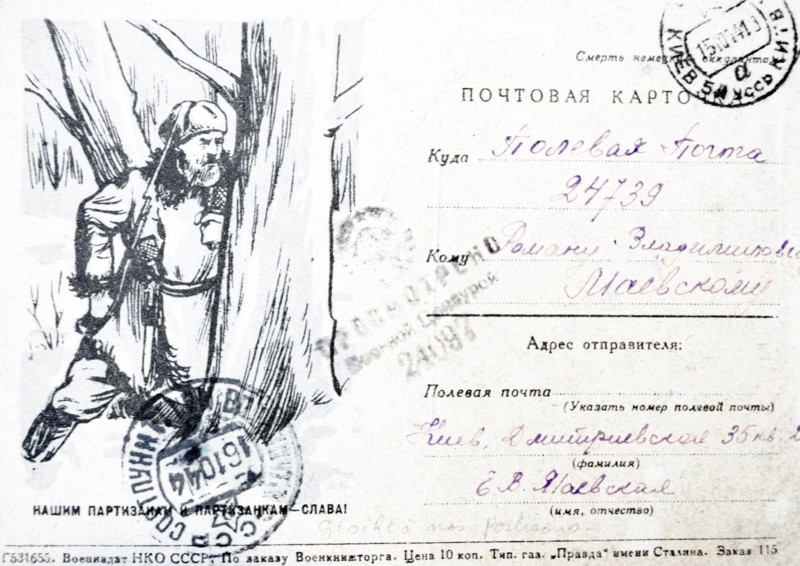 Смерть немецким оккупантам
ПОЧТОВАЯ КАРТО
КИЕВ
Куда Полевая Почта
24739
Кому Роману Владимиров
Маевскому
ПРОСМОТРЕНО
Военной Цензурой
24097
Адрес отправителя:
Полевая почта
(Указать номер полевой почты)
Киев, Дмитриевская 35 кв. 2
(фамилия)
Е. В. Маевская
(имя, отчество)
161044
СССР
НАШИМ ПАРТИЗАНАМ И ПАРТИЗАНКАМ—СЛАВА!
Г531655. Воениздат НКО СССР. По заказу Военкнижторга. Цена 10 коп. Тип. газ. „Правда" имени Сталина. Заказ 115